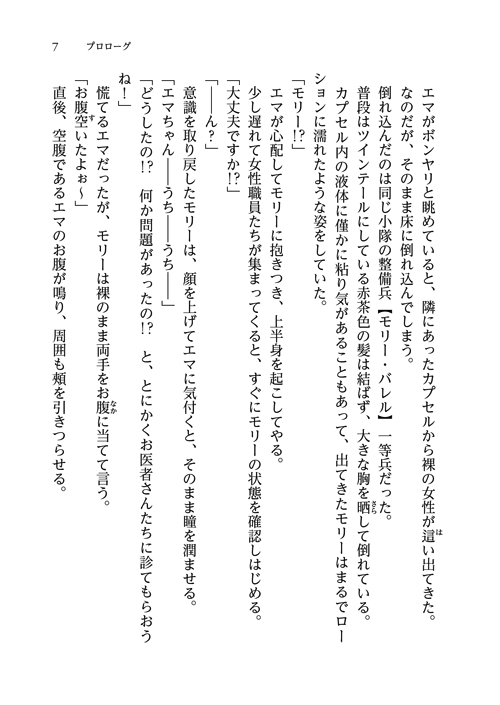 7　プロローグ
エマがボンヤリと眺めていると、隣にあったカプセルから裸の女性が這い出てきた。
なのだが、そのまま床に倒れ込んでしまう。
倒れ込んだのは同じ小隊の整備兵【モリー・バレル】一等兵だった。
普段はツインテールにしている赤茶色の髪は結ばず、大きな胸を晒して倒れている。
カプセル内の液体に僅かに粘り気があることもあって、出てきたモリーはまるでロー
ションに濡れたような姿をしていた。
「モリー!?」
エマが心配してモリーに抱きつき、上半身を起こしてやる。
少し遅れて女性職員たちが集まってくると、すぐにモリーの状態を確認しはじめる。
「大丈夫ですか!?」
「――ん？」
意識を取り戻したモリーは、顔を上げてエマに気付くと、そのまま瞳を潤ませる。
「エマちゃん――うち――うち――」
「どうしたの!?　何か問題があったの!?　と、とにかくお医者さんたちに診てもらおう
ね！」
慌てるエマだったが、モリーは裸のまま両手をお腹に当てて言う。
「お腹空いたよぉ～」
直後、空腹であるエマのお腹が鳴り、周囲も頬を引きつらせる。